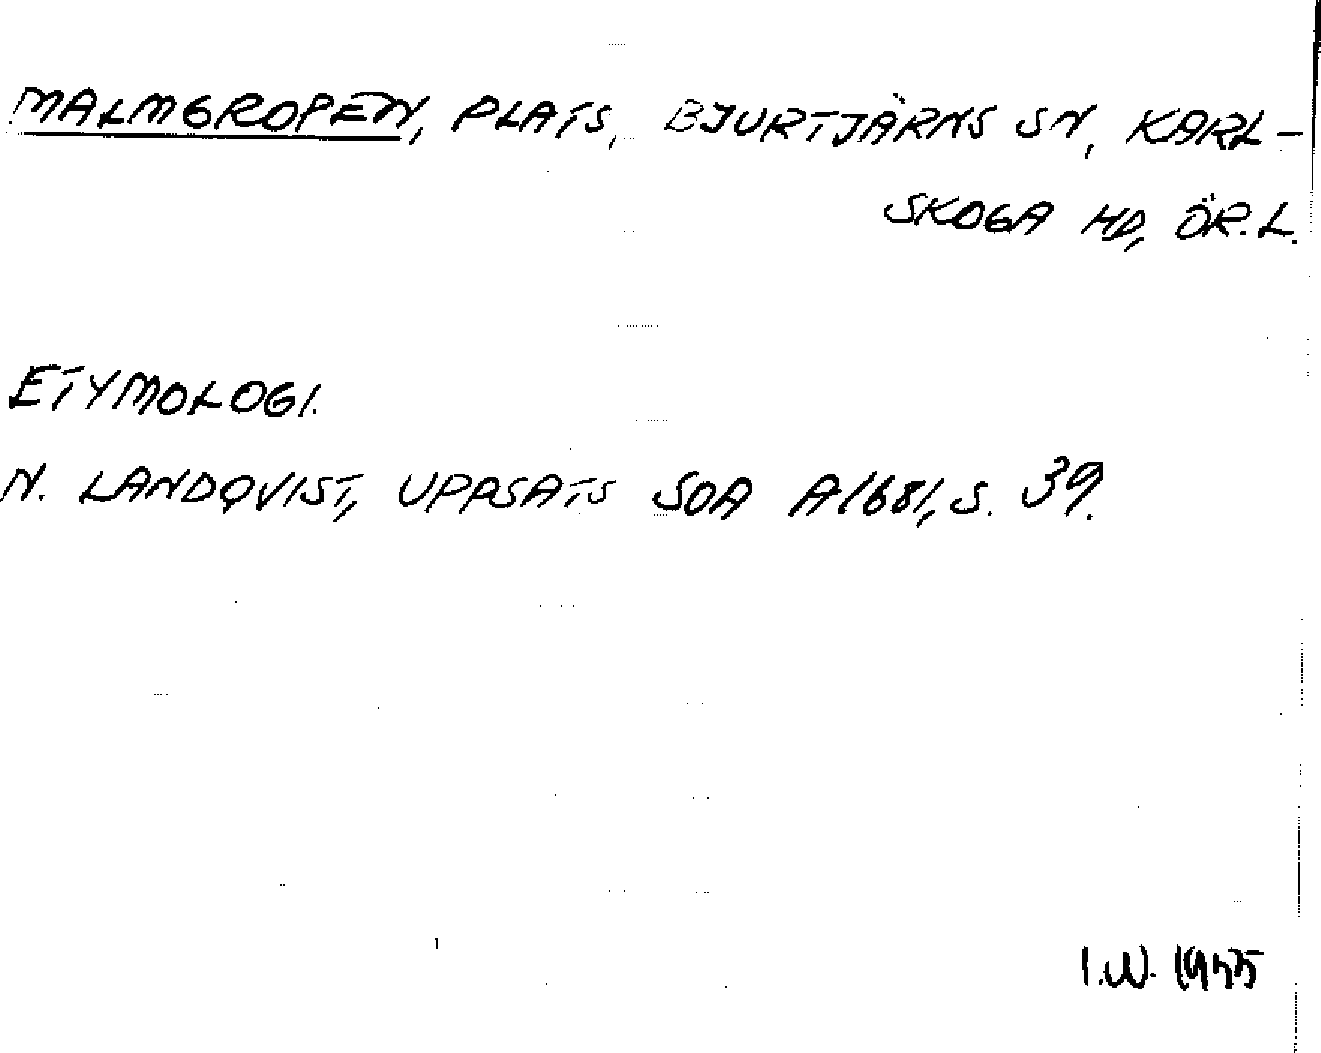 MALMGROPEN, PLATS, BJURTJÄRNS SN, KARL-
SKOGA HD, ÖR.L.
ETYMOLOGI.
N. LANDQVIST, UPPSATS SOA A1681, S. 39.
I.W. 1975